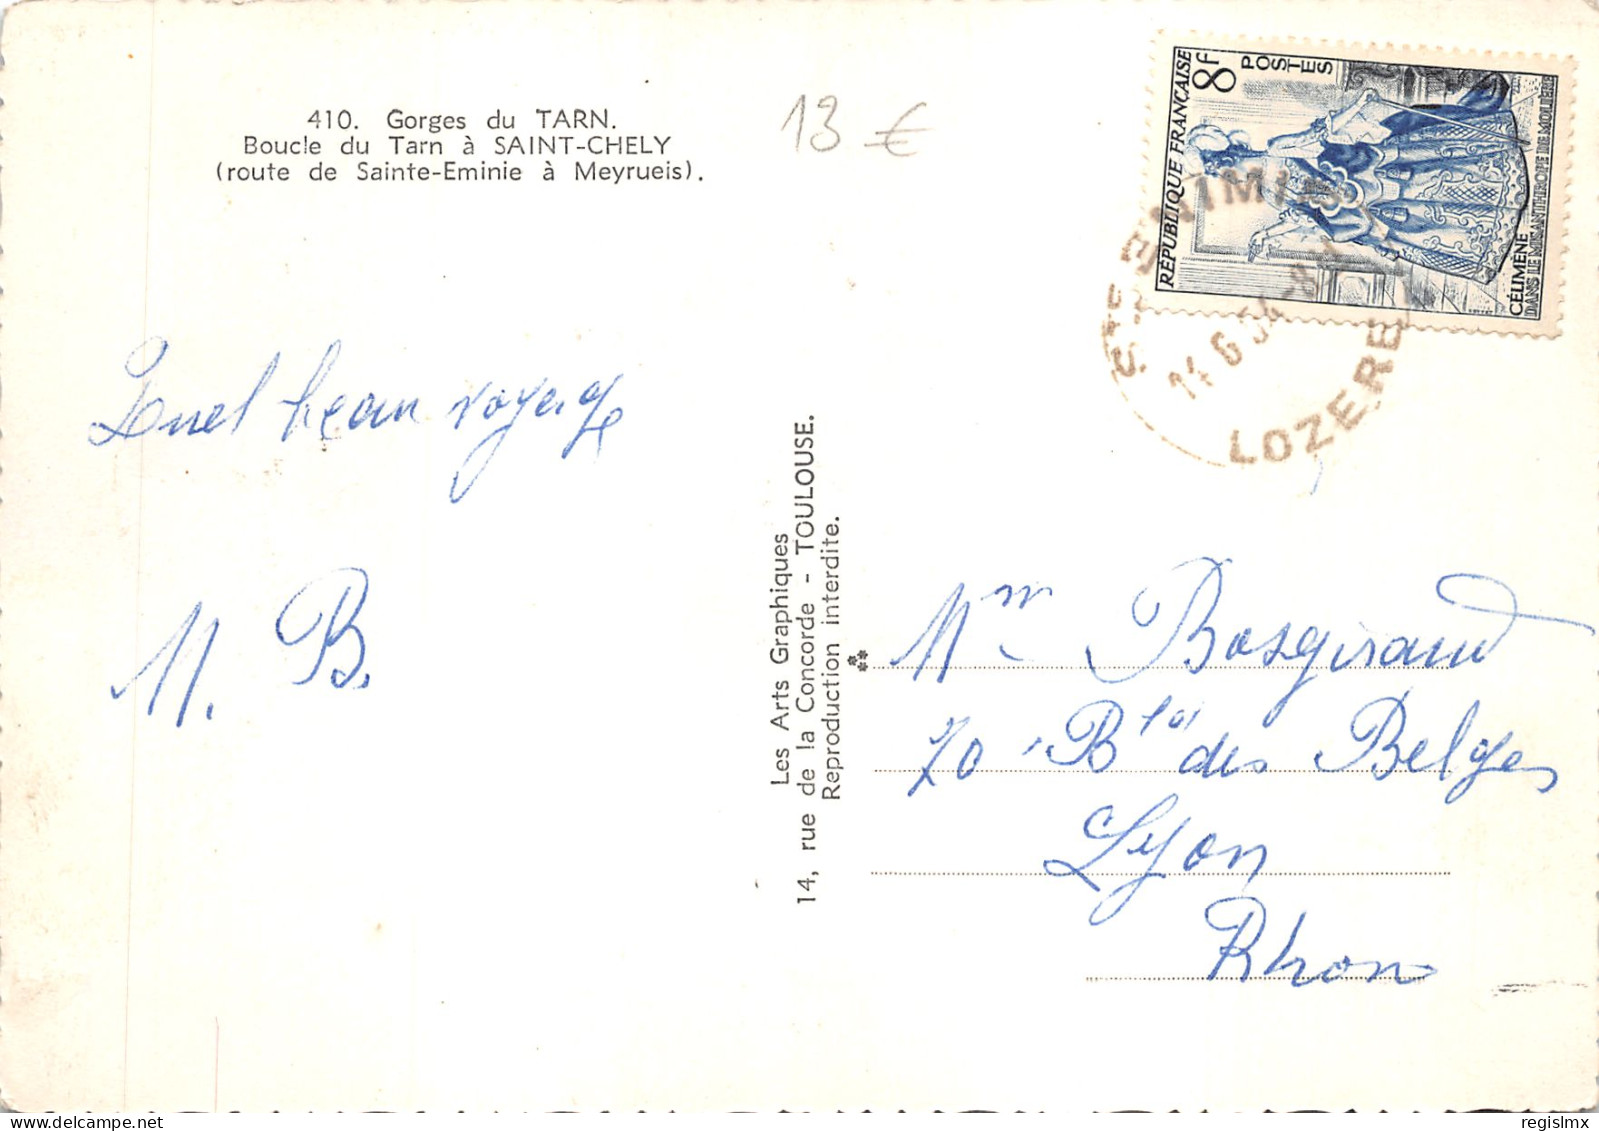 410. Gorges du TARN.
Boucle du Tarn à SAINT-CHELY
(route de Sainte-Eminie à Meyrueis).
13 €
RÉPUBLIQUE FRANÇAISE
8F
POSTES
CÉLIMÈNE
DANS LE MISANTHROPE DE MOLIÈRE
14 6 54
LOZERE
Quel beau voyage
M. B.
Les Arts Graphiques
14, rue de la Concorde - TOULOUSE.
Reproduction interdite.
Mm Bosgiraud
70 Bld des Belges
Lyon
Rhone
regislmx